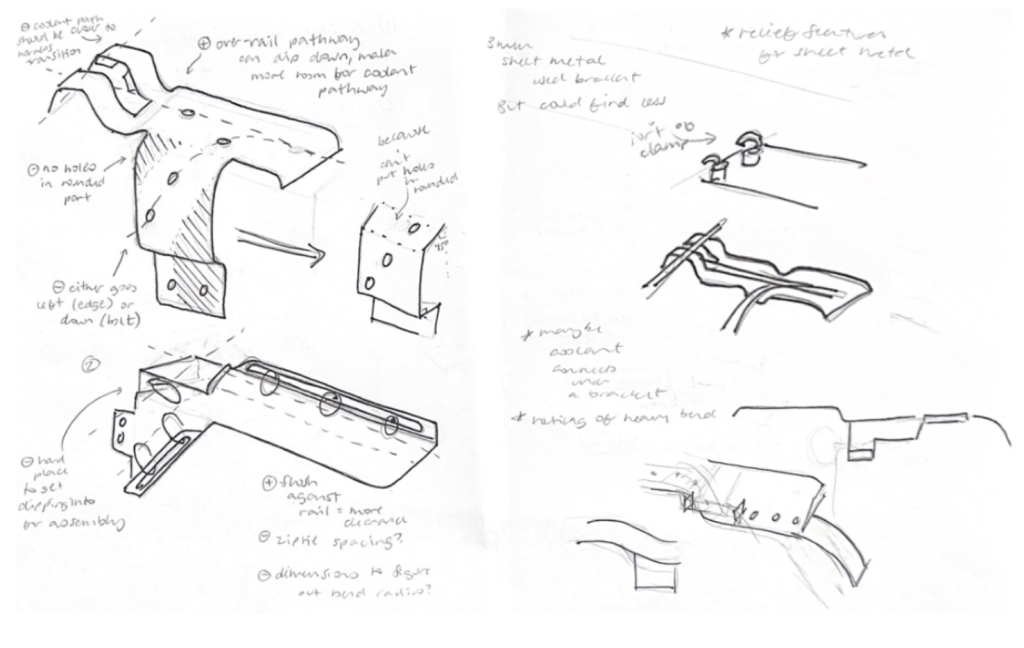 ⊖ coolant path
should be closer to
harness
transition
⊕ over-rail pathway
can dip down, make
more room for coolant
pathway
⊖ no holes
in rounded
part
because
can't
put holes
in
rounded
45°
⊖ either goes
left (edge) or
down (bolt)
②
⊖ hard
place
to get
clipping into
for assembly
⊕ flush
against
rail = more
clearance
⊖ ziptie spacing?
⊖ dimensions to figure
out bend radius?
* relief features
for sheet metal
3mm
sheet metal
used bracket
But could find less
sort of
clamp
* maybe
coolant
connects
under
a bracket
* routing of heavy bend